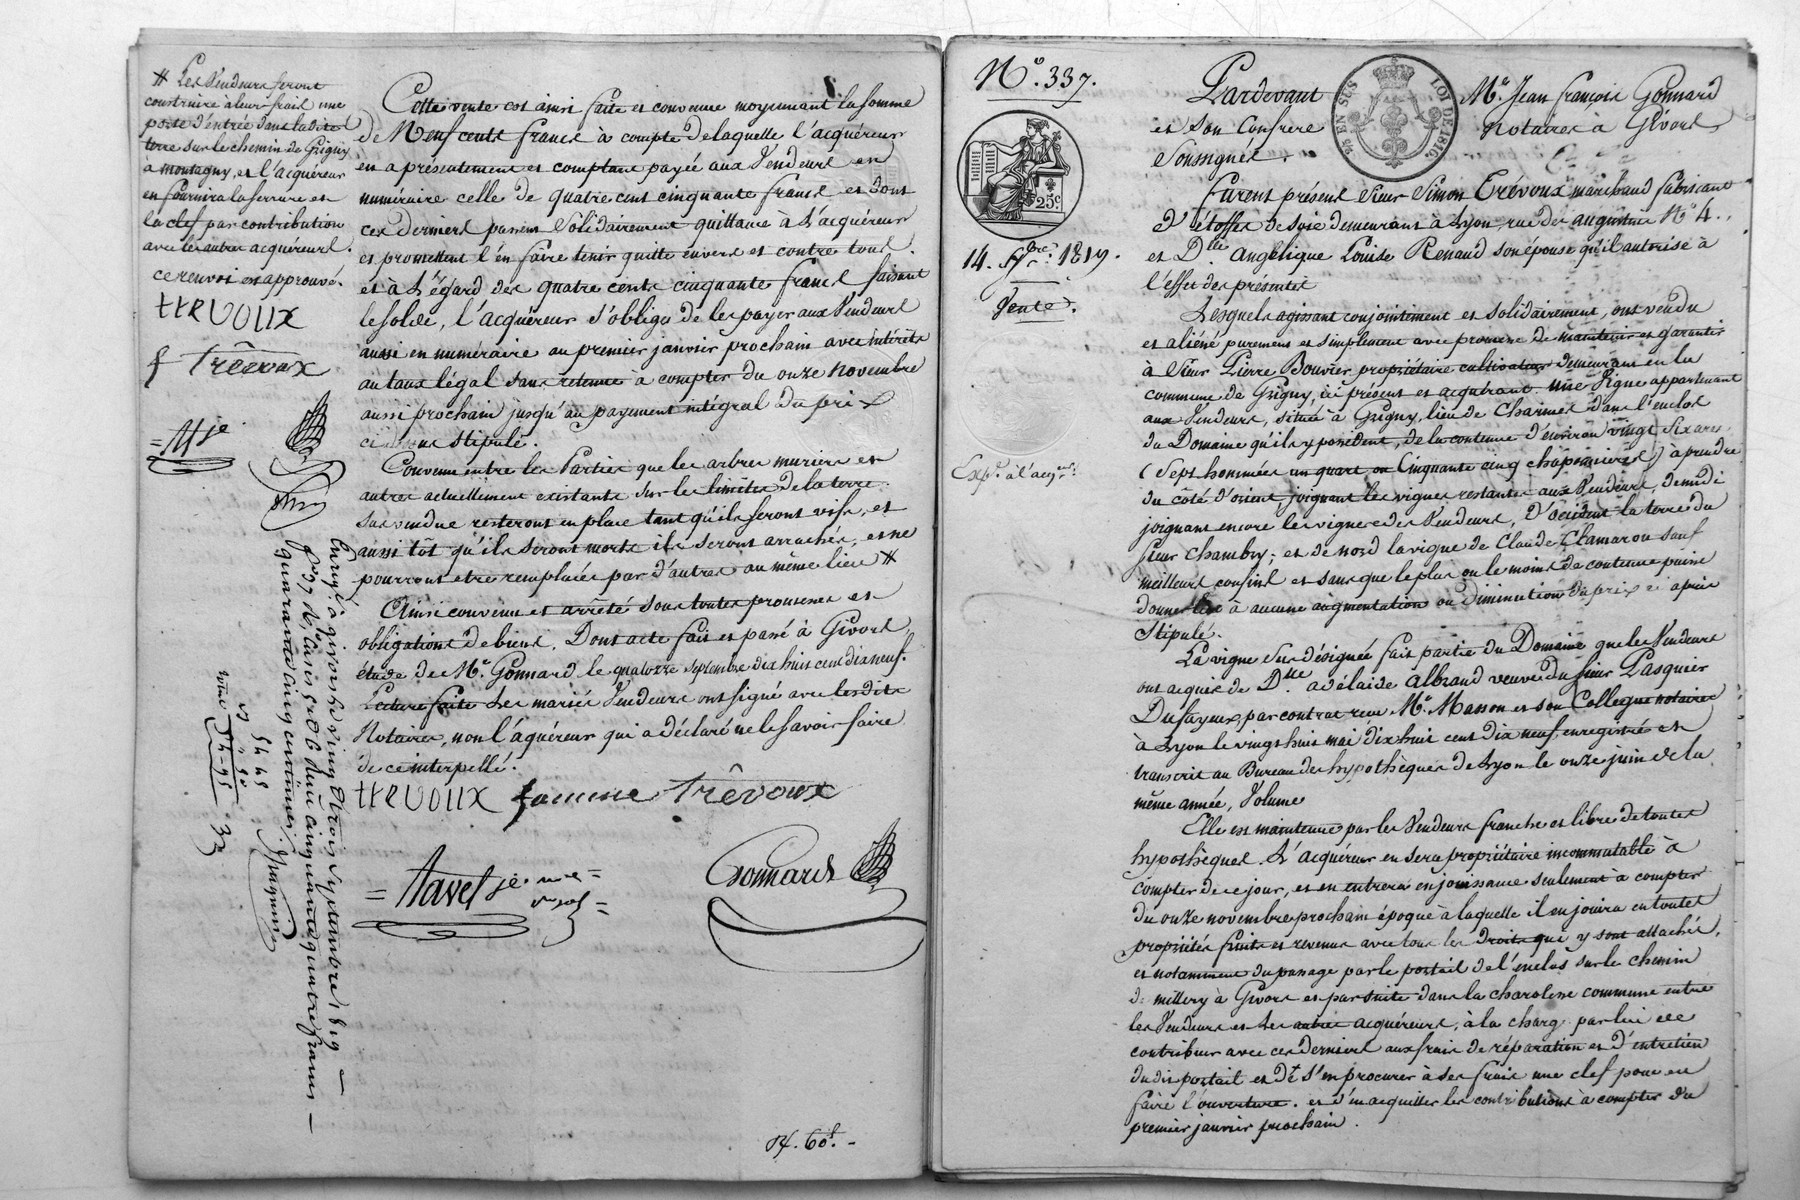 # Les Vendeurs feront
construire à leur frais une
porte d'entrée dans la dite
terre sur le chemin de Grigny
à montagny, et l'acquéreur
en fournira la serrure et
la clef par contribution
avec les autres acquéreurs.
ce renvoi est approuvé.
trevoux
f Trêvoux
Cette vente est ainsi faite et convenue moyennant la somme
de Neuf cents francs à compte de laquelle l'acquéreur
en a présentement et comptant payée aux Vendeurs en
numéraire celle de quatre cent cinquante francs et dont
ces derniers passent solidairement quittance à L'acquéreur
et promettent l'en faire tenir quitte envers et contre tous.
et à L'égard des quatre cents cinquante francs faisant
le solde, l'acquéreur s'oblige de les payer aux Vendeurs
aussi en numéraire au premier janvier prochain avec intérêts
au taux légal sans retenue à compter du onze novembre
aussi prochain jusqu'au payement intégral du prix
ci dessus stipulé.
Convenu entre les Parties que les arbres muriers et
autres actuellement existants sur les limites de la terre
sus vendue resteront en place tant qu'ils seront vifs, et
aussi tôt qu'ils seront morts ils seront arrachés, et ne
pourront etre remplacés par d'autres au même lieu #
Ainsi convenu et arrêté sous toutes promesses et
obligations de biens. Dont acte fait et passé à Givors,
étude de Me. Gonnard le quatorze septembre dix huit cent dix neuf.
Lecture faite Les mariés Vendeurs ont signé avec lesdits
Notaires, non l'aquéreur qui a déclaré ne le savoir faire
de ce interpellé.
trevoux femme Trêvoux
= Tavel je
Gonnard
Enregé à givors le vingt trois septembre 1819
quarante cinq centimes.
N°. 337.
25c
14. 7bre. 1819.
Vente.
Expon. à l'acqr.
Pardevant Me. Jean françois Gonnard
et son Confrere Notaires à Givors
Soussignés.
25 EN SUS
LOI DE 1816.
furent présens sieur Simon Trévoux marchand fabricant
d'étoffes de soie demeurant à Lyon rue des augustins N° 4.
et Dlle. Angélique Louise Renaud son épouse qu'il autorise à
l'effet des présentes
Lesquels agissant conjointement et solidairement, ont vendu
et aliéné purement et simplement avec promesse de maintenir et garantir
à Sieur Pierre Bouvier propriétaire cultivateur demeurant en la
commune de Grigny, ici présent et acquérant une Vigne appartenant
aux Vendeurs, située à Grigny, lieu de Charmes dans l'enclos
du Domaine qu'ils y possèdent, de la contenue d'environ vingt six ares
(Sept hommées un quart ou Cinquante cinq chaponnieres) à prendre
du côté d'orient, joignant les vignes restantes aux Vendeurs, de midi
joignant encore les vignes des Vendeurs, d'occident la terre du
sieur Chambry; et de nord la vigne de Claude Clamaron sauf
meilleurs confins et sans que le plus ou le moins de contenue puisse
donner lieu à aucune augmentation ou diminution du prix ci après
stipulé.
La vigne sus désignée fait partie du Domaine que les Vendeurs
ont acquis de Dlle. adélaide albrand veuve du sieur Pasquier
Dufayeux, par contrat reçu Me. Masson et son Collegue notaires
à Lyon le vingt huit mai dix huit cent dix neuf, enregistré et
transcrit au Bureau des hypothèques de Lyon le onze juin de la
même année, Volume
Elle est maintenue par les Vendeurs franche et libre de toutes
hypothèques. L'acquéreur en sera propriétaire incommutable à
compter de ce jour, et en entrera en jouissance seulement à compter
du onze novembre prochain époque à laquelle il en jouira en toutes
propriétés fruits et revenus avec tous les droits qui y sont attachés,
et notamment du passage par le portail de l'enclos sur le chemin
de millery à Givors et par suite dans la charoliere commune entre
les Vendeurs et Les autres acquéreurs, à la charge par lui de
contribuer avec ces derniers aux frais de réparation et d'entretien
dudit portail et de s'en procurer à ses frais une clef pour en
faire l'ouverture. et d'en acquitter les contributions à compter du
premier janvier prochain.